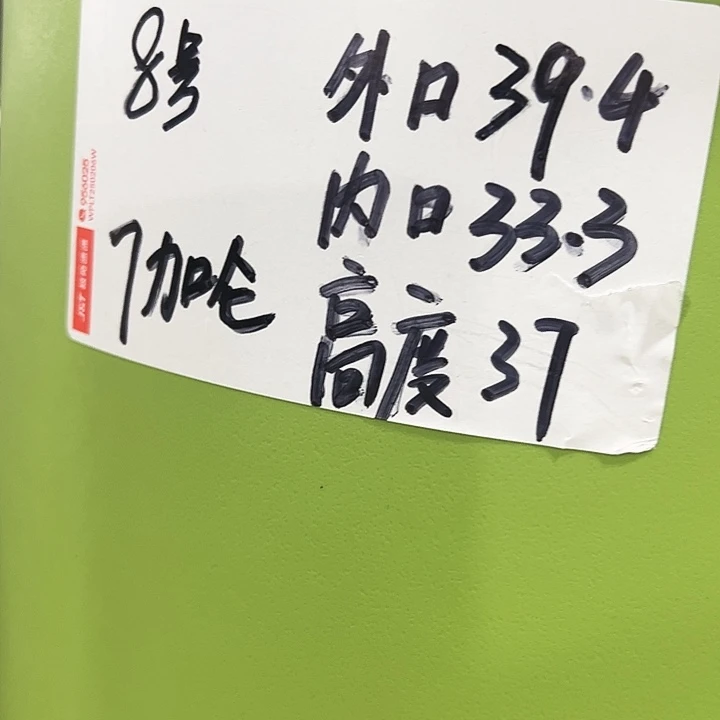 8号
外口 39.4
内口 33.3
7加仑
高度 37
956025
WPLT250206W
J&T 极兔速递